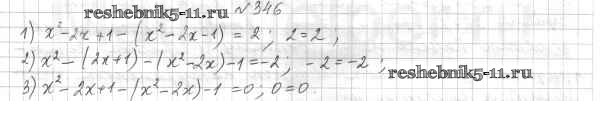 reshebnik5-11.ru № 346
1) x²-2x+1-(x²-2x-1) = 2; 2=2;
2) x²-(2x+1)-(x²-2x)-1=-2; -2=-2;
reshebnik5-11.ru
3) x²-2x+1-(x²-2x)-1=0; 0=0.